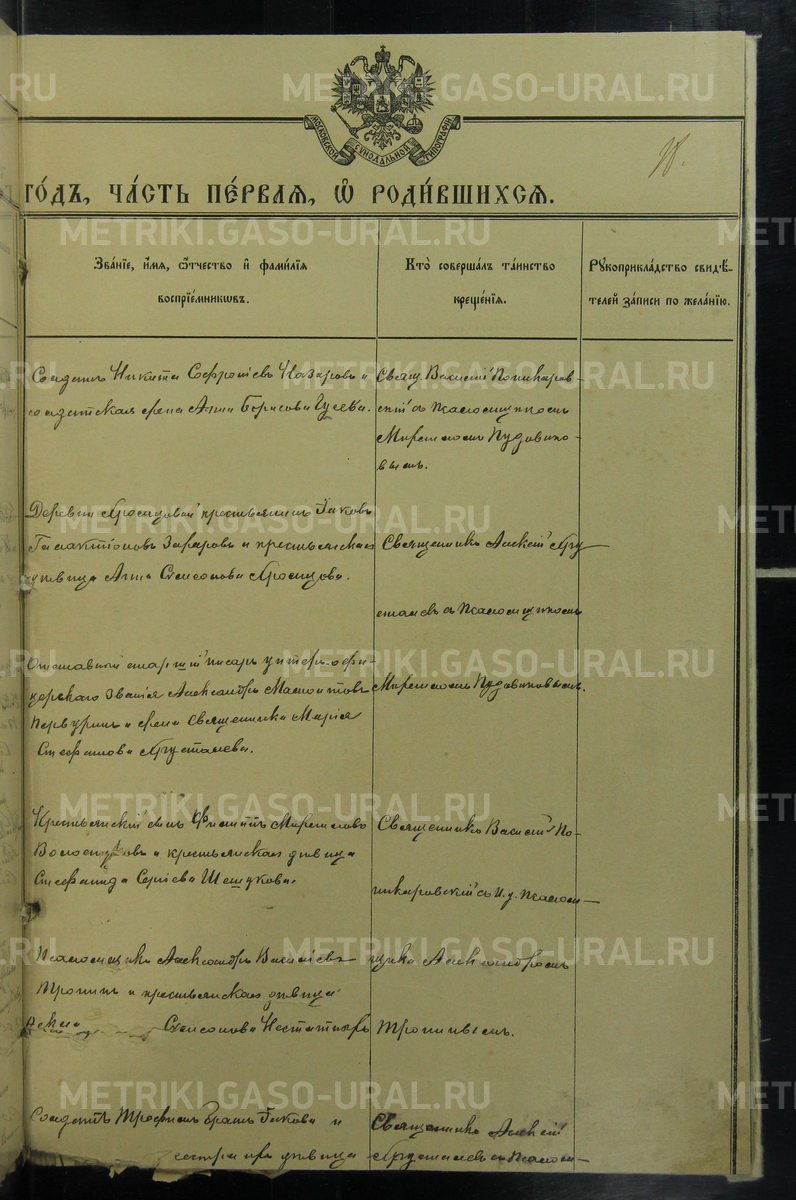 МОСКОВСКОЙ СѴНОДАЛЬНОЙ ТИПОГРАФІИ
ГО́ДЪ, ЧА́СТЬ ПЕ́РВАЯ, Ѽ РОДИ́ВШИХСЯ.
Зва́нїе, и҆́мя, ѻ҆́тчество и҆ фами́лїя
воспрїе́мникѡвъ.
Кто̀ соверша́лъ та́инство
креще́нїя.
Рꙋкоприкла́дство свидѣ́-
телей за́писи по жела́нїю.
Солдатъ Никита Софроніевъ Назаровъ и
солдатская жена Анна Борисова Гусева.
Свящ. Василій Поликаров-
скій съ псаломщикомъ
Пудовико-
вымъ.
Деревни крестьянинъ Іаковъ
Галактіоновъ Захаровъ и крестьянская
дѣвица Анна Симеонова
Священникъ Алексій Хру
сталевъ съ псаломщикомъ
Отставной старшій писарь унтеръ-офи-
церскаго званія Александръ
и жена священника Марія
Стефанова Хрусталева.
Пудовиковымъ.
Крестьянскій сынъ
и крестьянская дѣвица
Стефанида Сергіева Шешукова.
Священникъ Василій По-
ликаровскій съ и. д. псалом-
Псаломщикъ Александръ Васильевъ
Тропинъ и крестьянская дѣвица
Симеонова
щика Александромъ
Тропинымъ.
Солдатъ Трофимъ братъ Іакова и
сестра их дѣвица
Священникъ Алексій
Хрусталевъ съ псалом-
METRIKI.GASO-URAL.RU